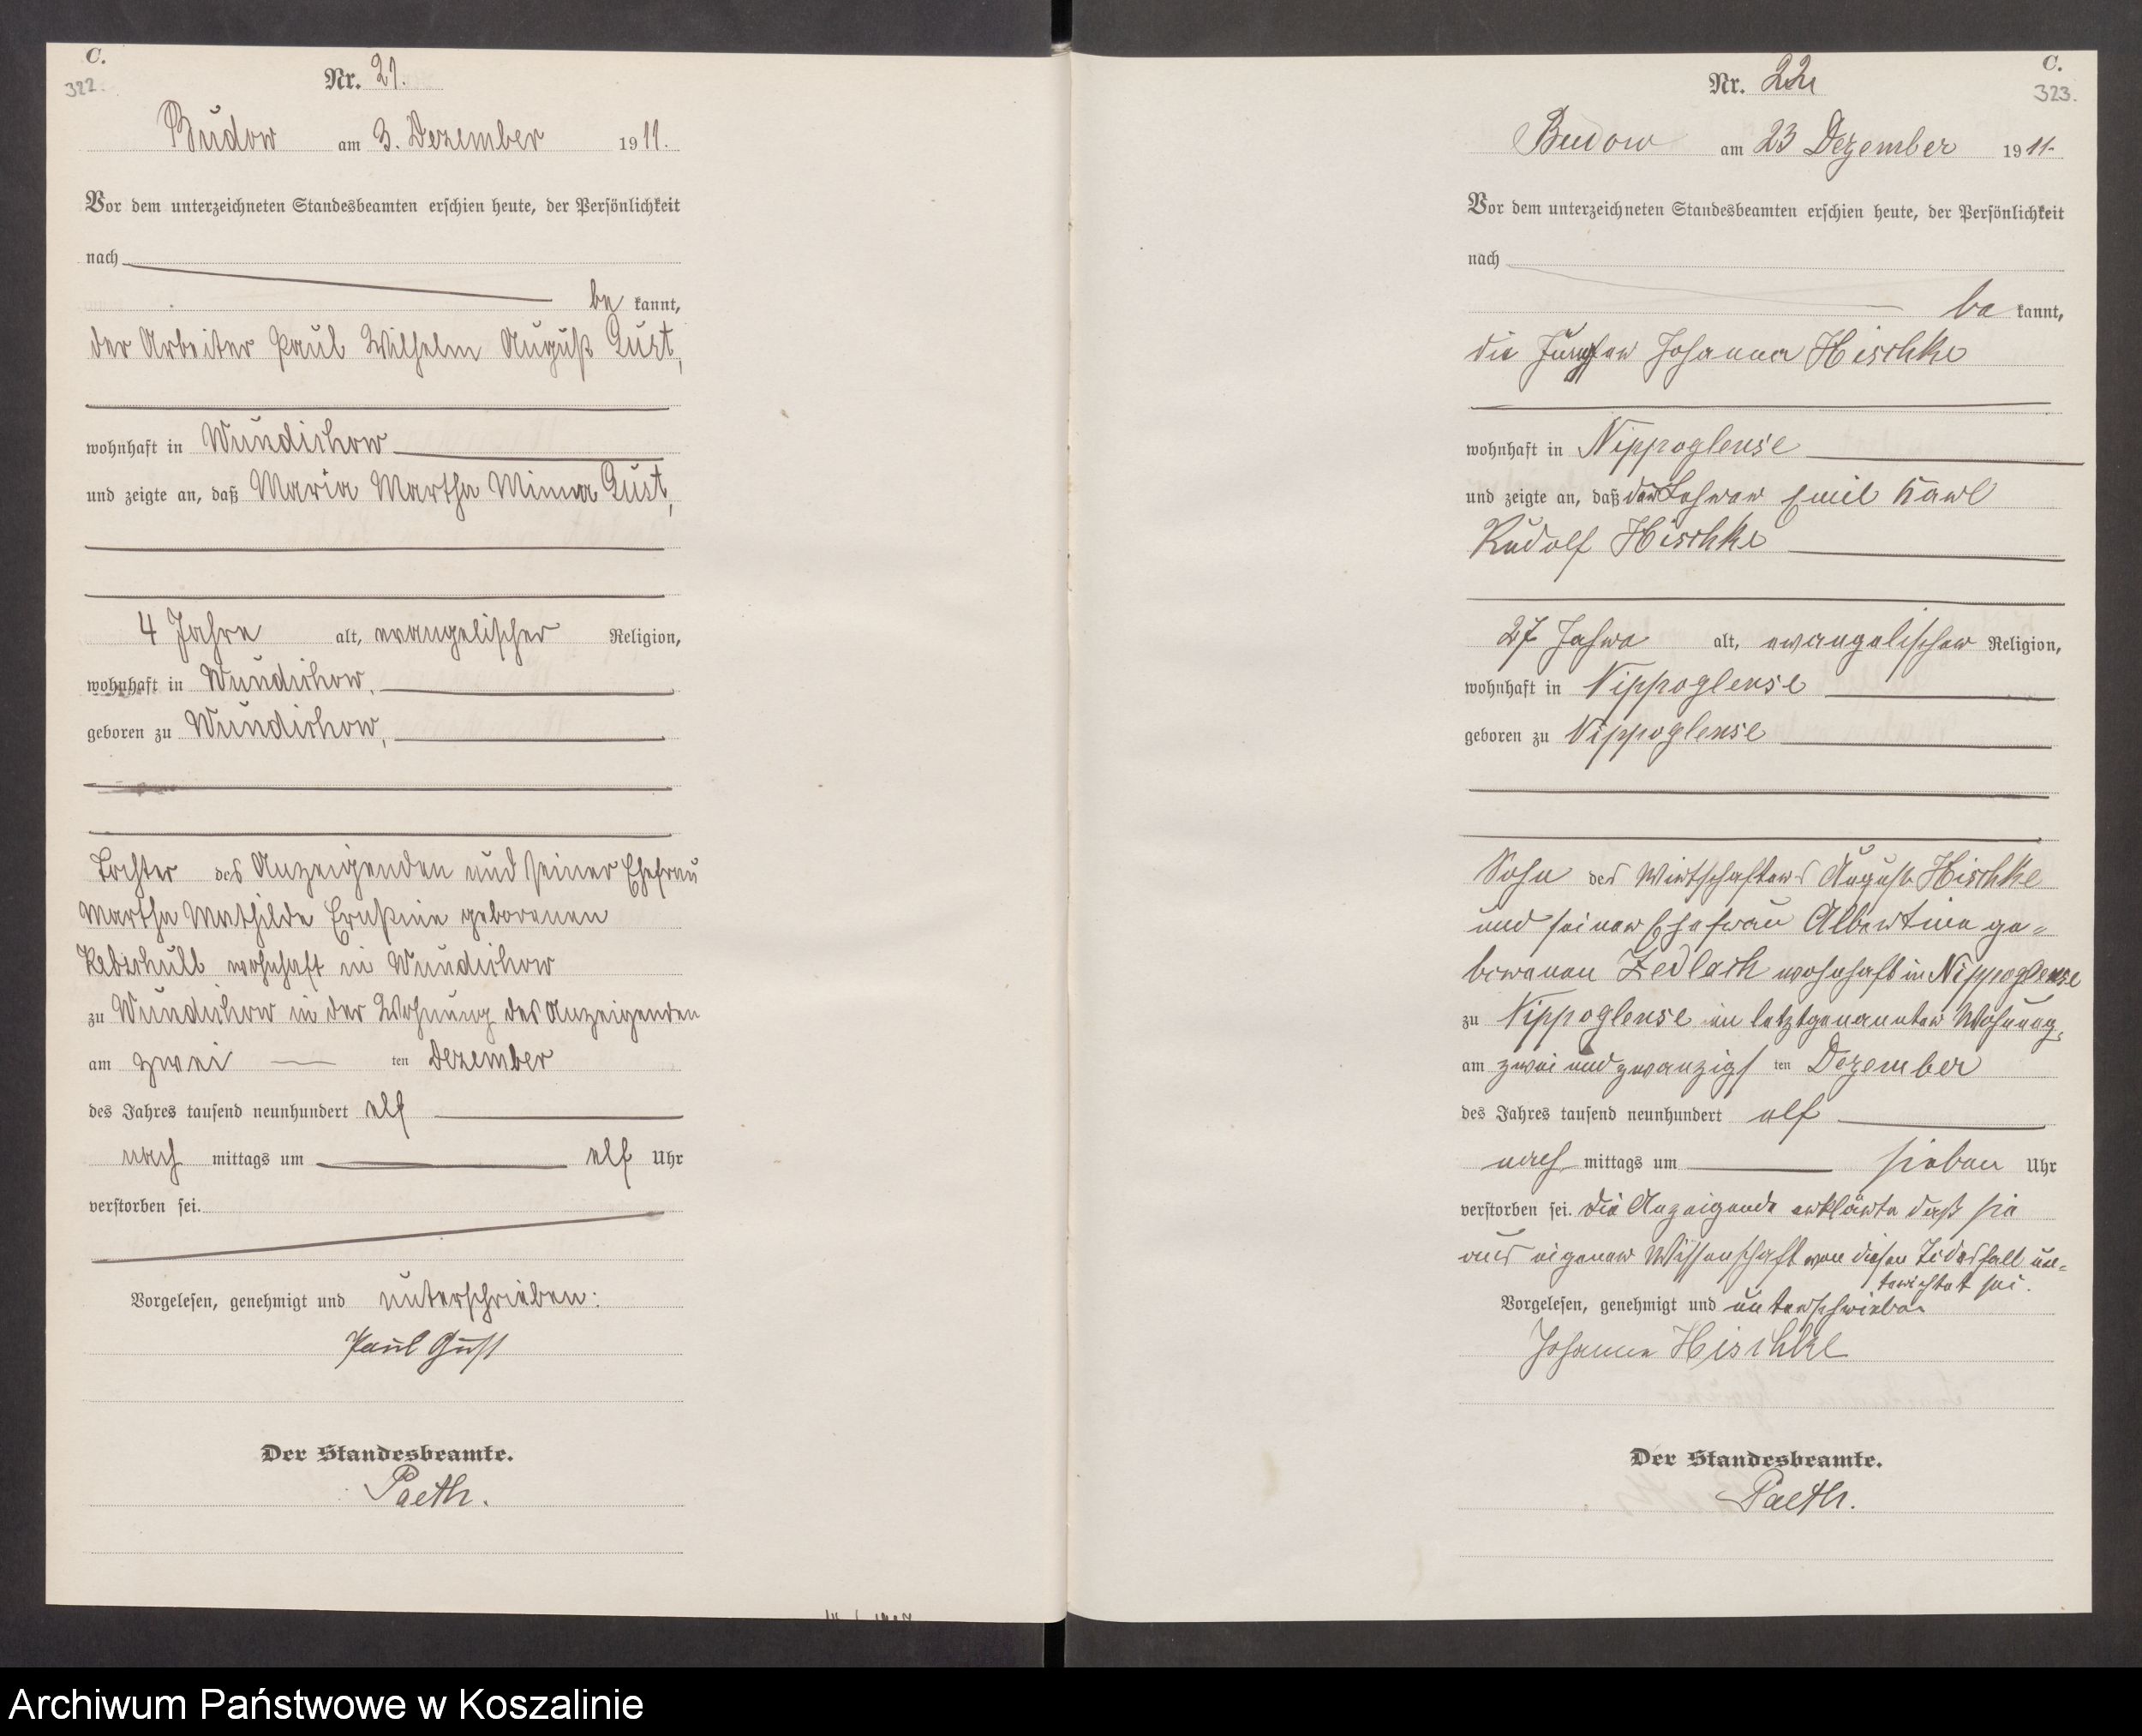 C.
322.
Nr. 21.
Budow am 3. Dezember 1911.
Vor dem unterzeichneten Standesbeamten erschien heute, der Persönlichkeit
nach
be kannt,
der Arbeiter Paul Wilhelm August Gust,
wohnhaft in Wundichow
und zeigte an, daß Maria Martha Minna Gust,
4 Jahre alt, evangelischer Religion,
wohnhaft in Wundichow,
geboren zu Wundichow,
Tochter des Anzeigenden und seiner Ehefrau
Martha Mathilde Ernstine geborenen
wohnhaft in Wundichow
zu Wundichow in der Wohnung des Anzeigenden
am zwei ten Dezember
des Jahres tausend neunhundert elf
nach mittags um elf Uhr
verstorben sei.
Vorgelesen, genehmigt und unterschrieben:
Paul Gust
Der Standesbeamte.
Paeth.
C.
323.
Nr. 22
Budow am 23 Dezember 1911.
Vor dem unterzeichneten Standesbeamten erschien heute, der Persönlichkeit
nach
be kannt,
die Johanna Hischke
wohnhaft in Nippoglense
und zeigte an, daß der Emil Karl
Rudolf Hischke
27 Jahre alt, evangelischer Religion,
wohnhaft in Nippoglense
geboren zu Nippoglense
Sohn des Wirtschafters August Hischke
und seiner Ehefrau Albertine ge=
borenen Zedlach wohnhaft in Nippoglense
zu Nippoglense in letztgenannter Wohnung,
am zwei und zwanzigs ten Dezember
des Jahres tausend neunhundert elf
nach mittags um sieben Uhr
verstorben sei. Die Anzeigende erklärte daß sie
aus eigener Wissenschaft von diesen Todesfall un=
terrichtet sei.
Vorgelesen, genehmigt und unterschrieben
Johanna Hischke
Der Standesbeamte.
Paeth.
Archiwum Państwowe w Koszalinie